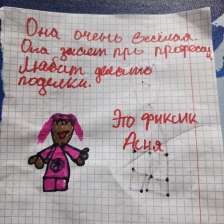 Она очень весёлая.
Она знает при професси
Любит делать
поделки.
Это фиксик
Асня